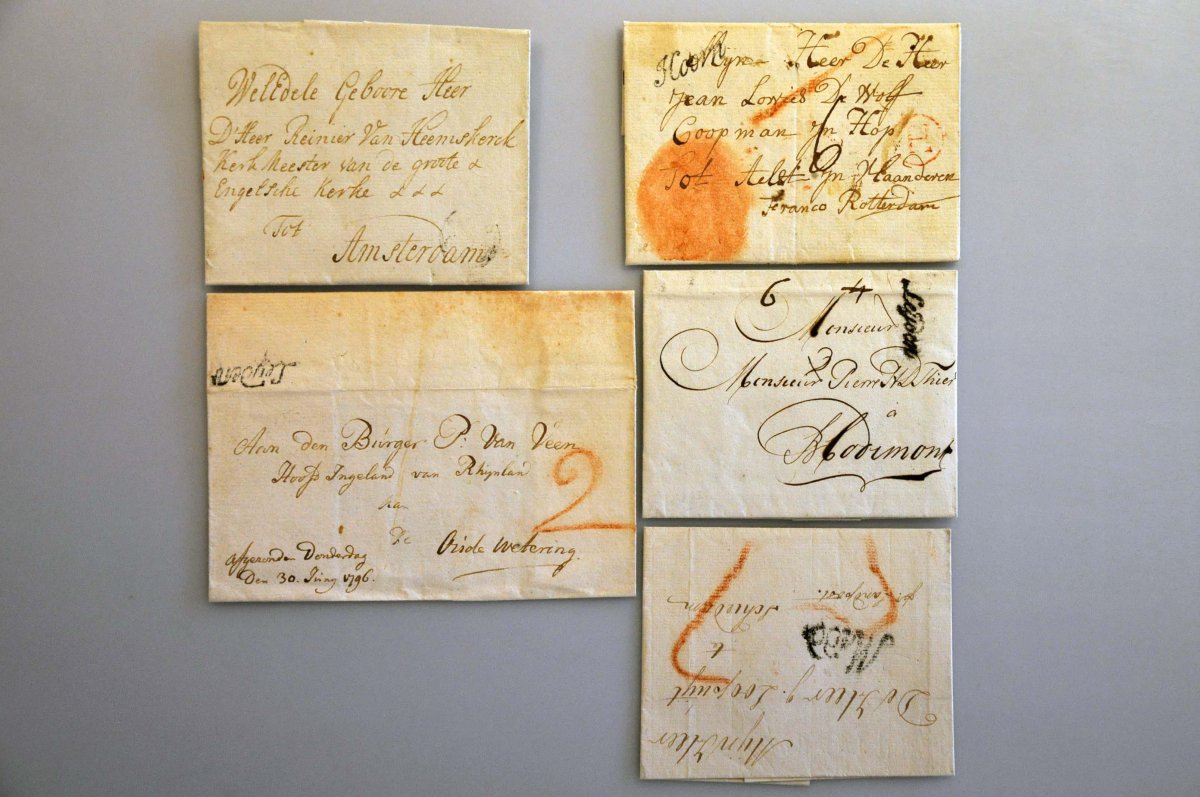 WelEdele Geboore Heer
D'Heer Reinier Van Heemskerck
KerkMeester van de groote &
Engelsche Kerke & & &
Tot
Amsterdam
Hoorn
Heer De Heer
Jean Lovies De Wolf
Coopman in Hop
6
Tot Aelst in Vlaanderen
Franco Rotterdam
Leyden
Aan den Burger P: Van Veen
Hoofd Ingeland van Rhijnland
aan
De Oude Wetering.
2
Afgezonden Donderdag
Den 30. Juny 1796.
6 4
Leyden
Monsieur
Monsieur Pierre
à
Hodimont
Mijn Heer
De Heer J. Loopuijt
te
Schiedam
pr Landpost.